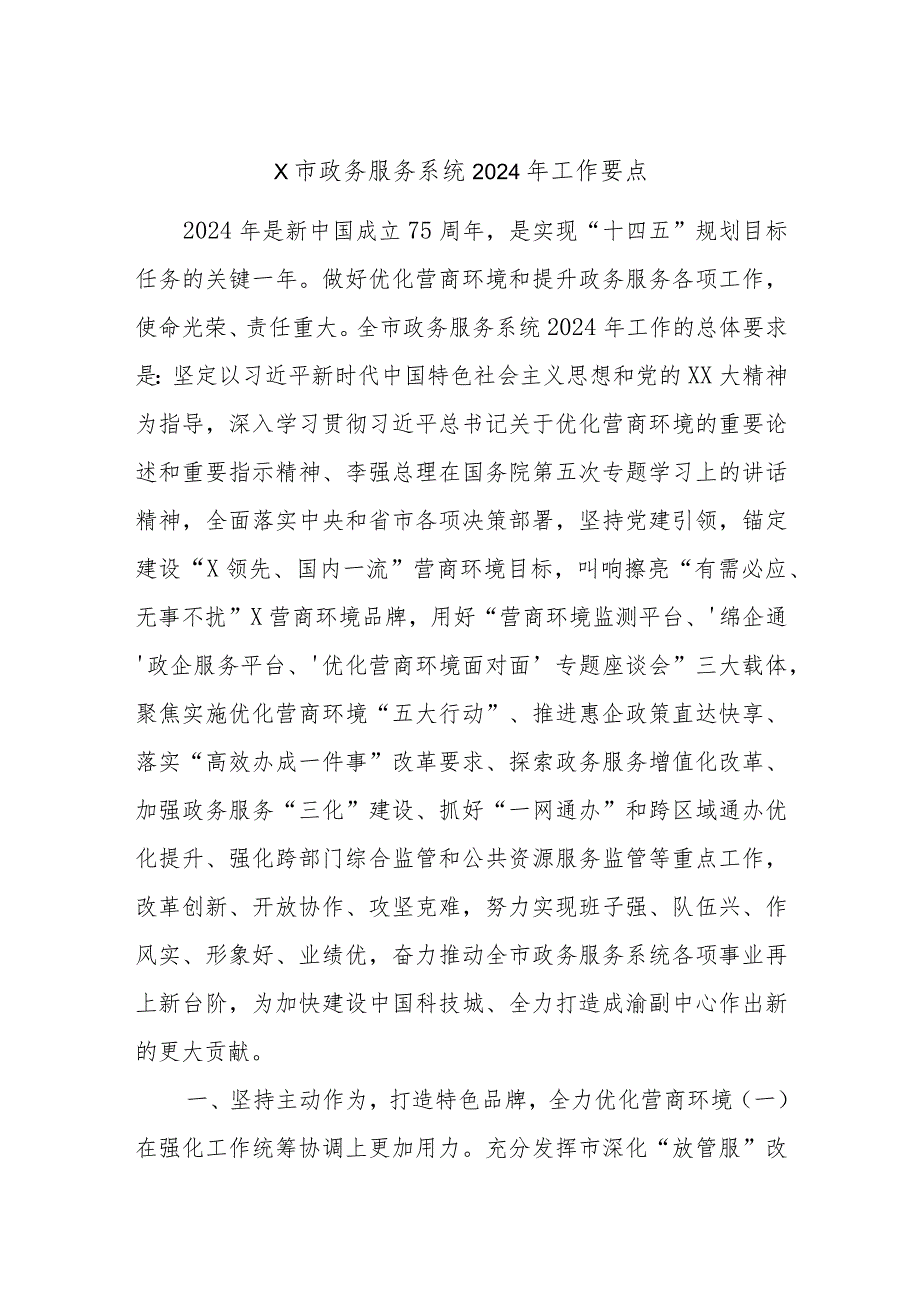 X市政务服务系统2024年工作要点
2024年是新中国成立75周年，是实现“十四五”规划目标
任务的关键一年。做好优化营商环境和提升政务服务各项工作，
使命光荣、责任重大。全市政务服务系统2024年工作的总体要求
是：坚定以习近平新时代中国特色社会主义思想和党的XX大精神
为指导，深入学习贯彻习近平总书记关于优化营商环境的重要论
述和重要指示精神、李强总理在国务院第五次专题学习上的讲话
精神，全面落实中央和省市各项决策部署，坚持党建引领，锚定
建设“X领先、国内一流”营商环境目标，叫响擦亮“有需必应、
无事不扰”X营商环境品牌，用好“营商环境监测平台、'绵企通
'政企服务平台、'优化营商环境面对面’专题座谈会”三大载体，
聚焦实施优化营商环境“五大行动”、推进惠企政策直达快享、
落实“高效办成一件事”改革要求、探索政务服务增值化改革、
加强政务服务“三化”建设、抓好“一网通办”和跨区域通办优
化提升、强化跨部门综合监管和公共资源服务监管等重点工作，
改革创新、开放协作、攻坚克难，努力实现班子强、队伍兴、作
风实、形象好、业绩优，奋力推动全市政务服务系统各项事业再
上新台阶，为加快建设中国科技城、全力打造成渝副中心作出新
的更大贡献。
一、坚持主动作为，打造特色品牌，全力优化营商环境（一）
在强化工作统筹协调上更加用力。充分发挥市深化“放管服”改